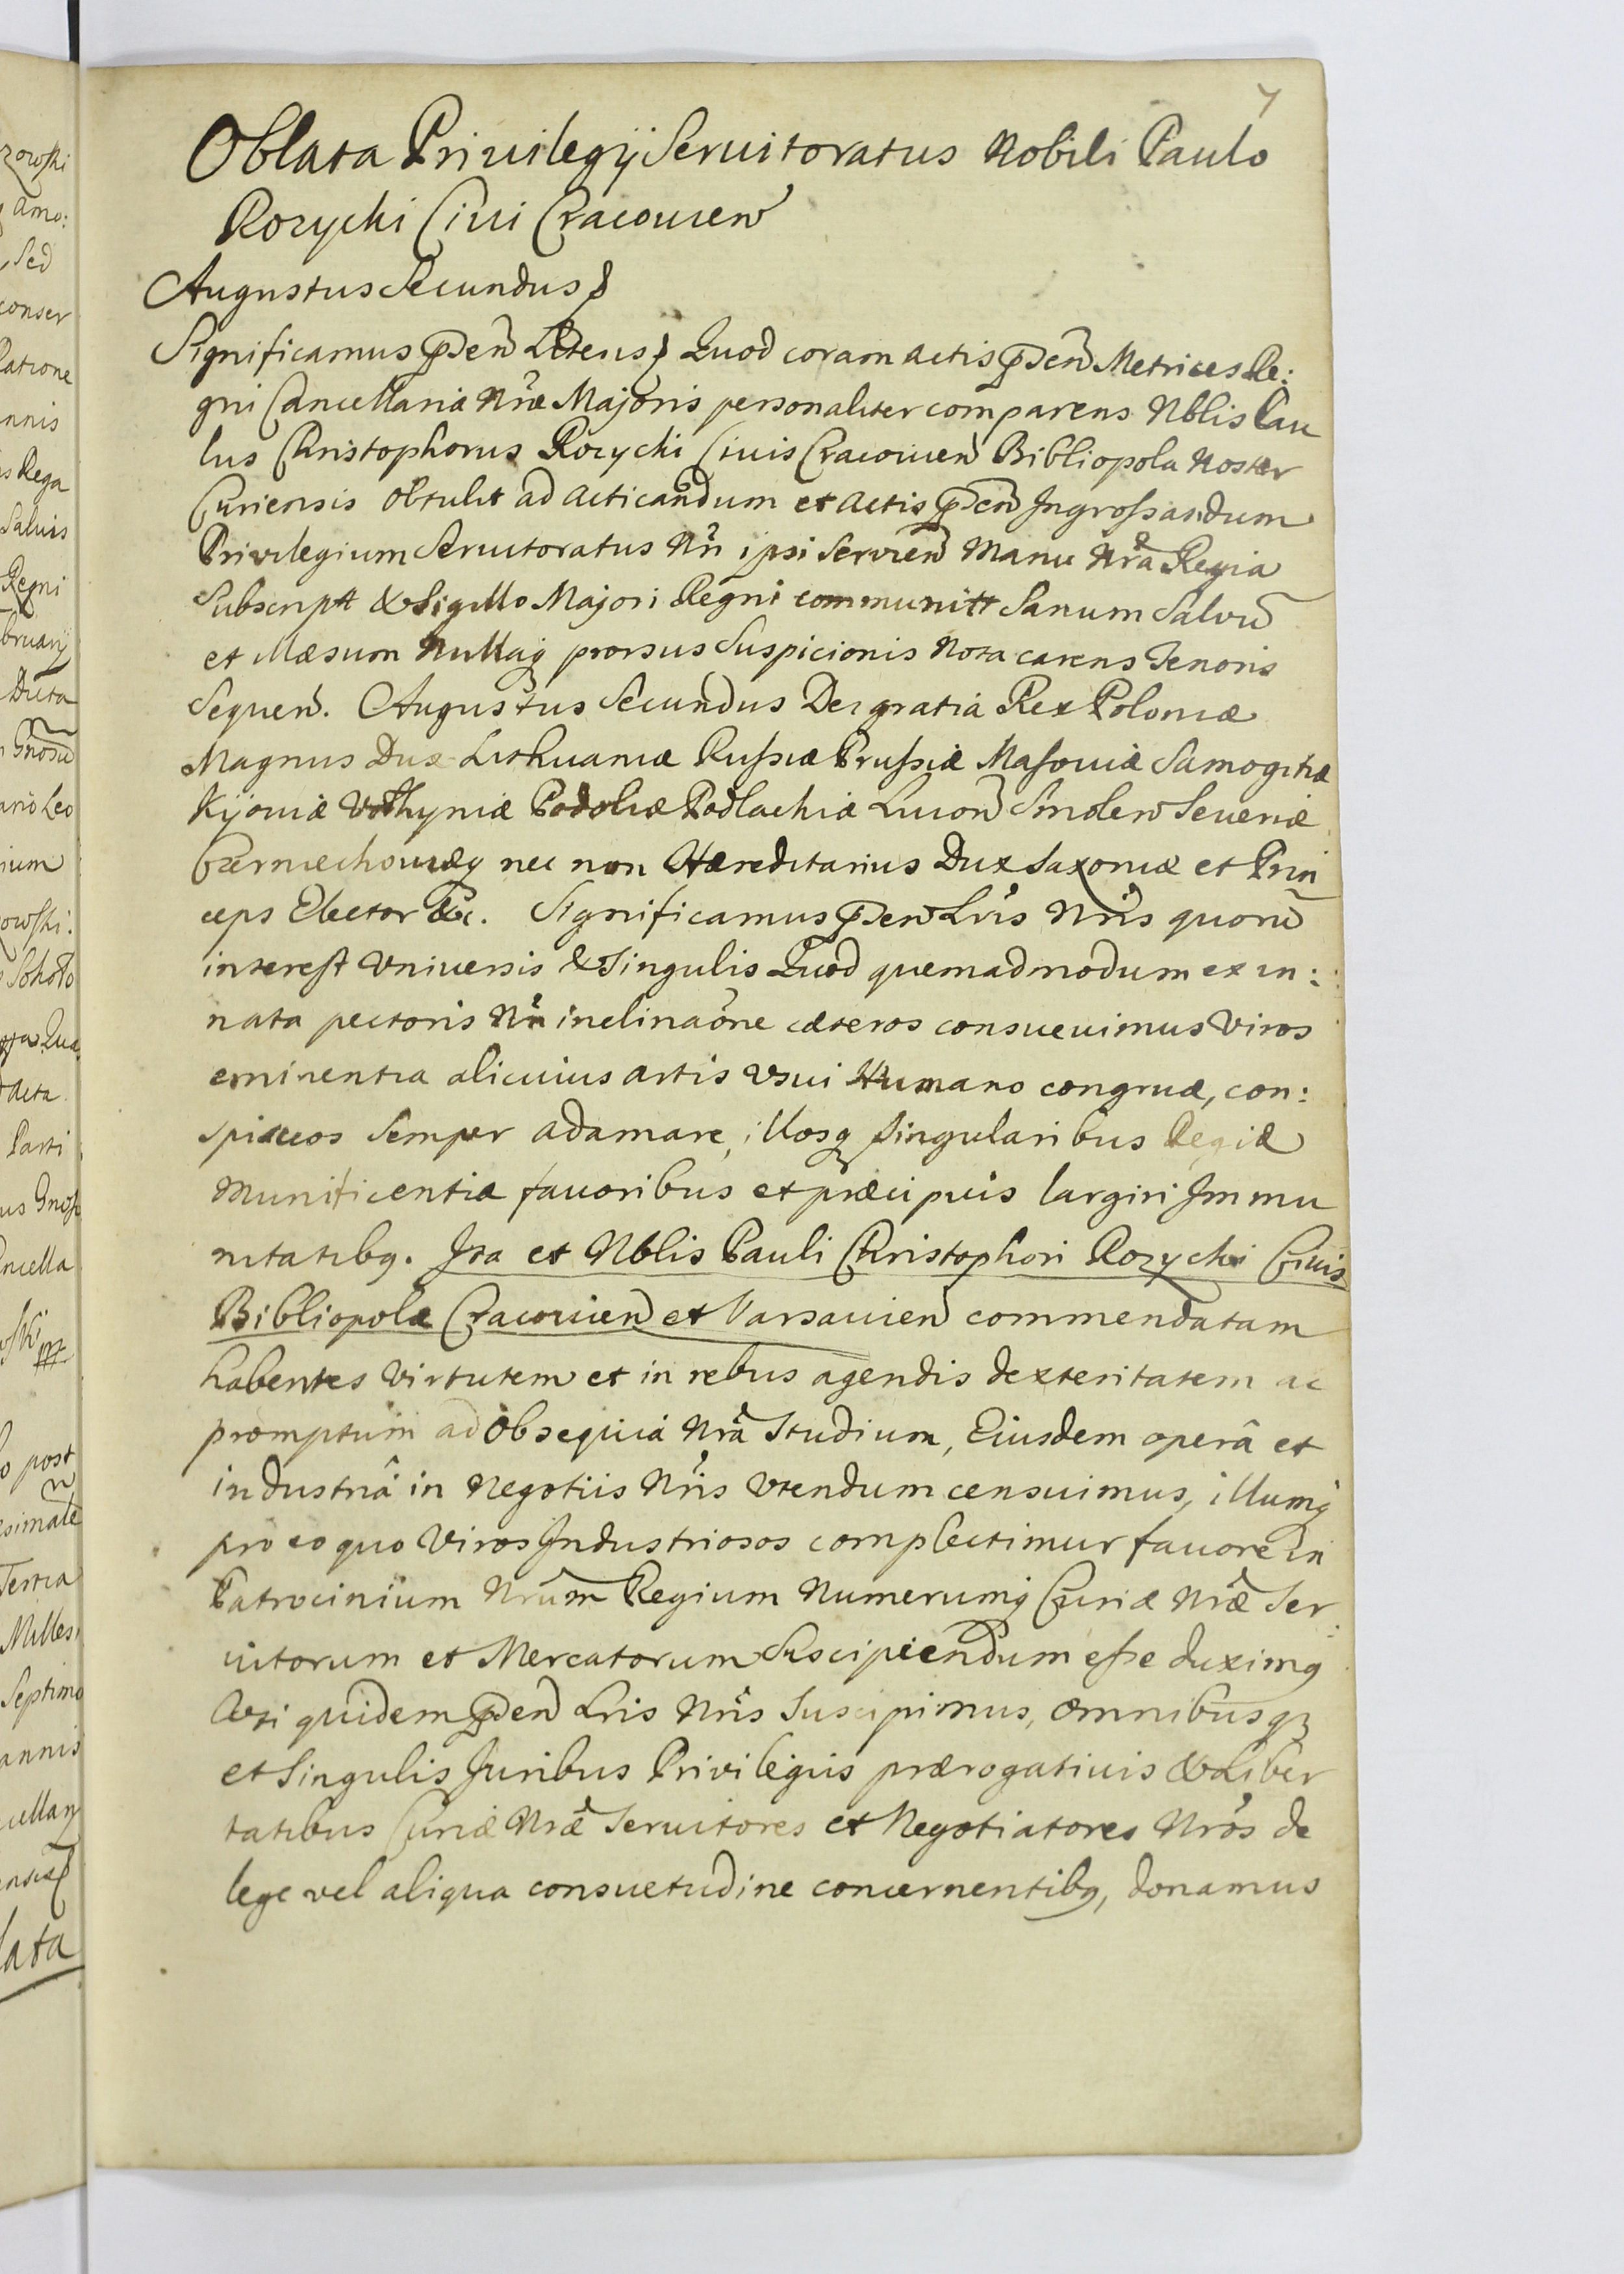 7
Oblata Privilegÿ Servitoratus Nobili Paulo
Rozycki Civi Cracovien
Augustus Secundus
Significamus pnden Literis Quod coram actis pnden Metrices Re:
gni Cancellariæ Nræ Majoris personaliter comparens Nblis Pau
lus Christophorus Rozycki Civis Cracovien Bibliopola Noster
Curiensis obtulit ad acticandum et actis pnden Ingrossandum
Privilegium Servitoratus Nri ipsi servien Manu Nra Regia
Subscript & Sigillo Majori Regni communitt Sanum Salvū
et illæsum Nullaq prorsus Suspicionis Nota carens Tenoris
Sequen. Augustus Secundus Dei gratia Rex Poloniæ
Magnus Dux Lithuaniæ Russiæ Prussiæ Masoviæ Samogitiæ
Kijoviæ Volhyniæ Podoliæ Podlachiæ Livon Smolen Severiæ
Czerniechoviæq nec non Hæreditarius Dux Saxoniæ et Prin
ceps Elector &c. Significamus pnden Lris Nris quorū
interest Vniversis & Singulis Quod quemadmodum ex in:
nata pectoris Nri inclinaõne cæteros consuevimus Viros
eminentia alicuius artis Vsui Humano congruæ, con:
spicuos Semper adamare, illosq singularibus Regiæ
Munificentiæ favoribus et præcipuis largiri Immu
nitatibq. Ita et Nblis Pauli Christophori Rozycki Civis
Bibliopolæ Cracovien et Varsavien commendatam
habentes Virtutem et in rebus agendis dexteritatem ac
promptum ad Obsequia Nrã Studium, Eiusdem operâ et
industriâ in Negotiis Nris Vtendum censuimus, illumq
pro eo quo Viros Industriosos complectimur favore in
Patrocinium Nrūm Regium Numerumq Curiæ Nræ Ser
vitorum et Mercatorum Suscipiendum esse duximq
Vti quidem pnden Lris Nris Suscipimus, omnibusq
et Singulis Juribus Privilegiis prærogativis & Liber
tatibus Curiæ Nræ Servitores et Negotiatores Nros de
lege vel aliqua consuetudine concernentibq, donamus